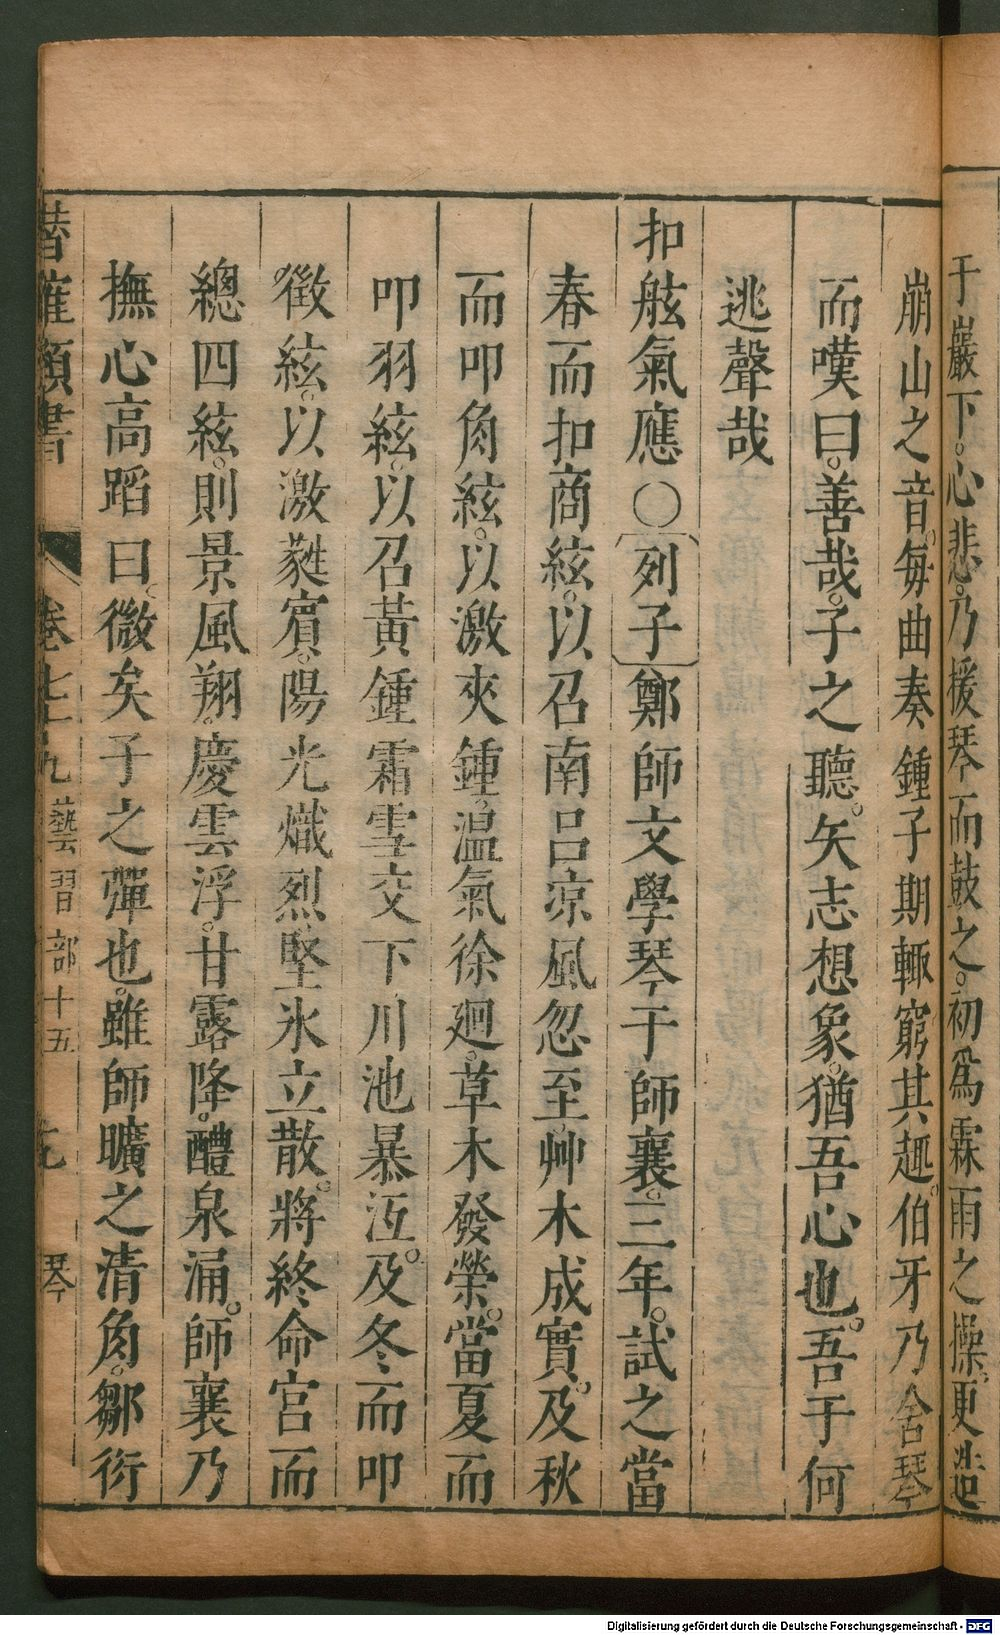 于巖下。心悲。乃援琴而鼓之。初爲霖雨之操。更造
崩山之音。每曲奏鍾子期輙窮其趣。伯牙乃舍琴
而嘆曰。善哉。子之聽。矢志想象。猶吾心也。吾于何
逃聲哉
扣舷氣應○列子鄭師文學琴于師襄。三年。試之當
春而扣商絃。以召南呂凉風忽至。艸木成實。及秋
而叩角絃。以激夾鍾。温氣徐廻。草木發榮。當夏而
叩羽絃。以召黃鍾霜雪交下川池暴沍。及冬而叩
徵絃。以激蕤賓。陽光熾烈。堅氷立散。將終命宮而
總四絃。則景風翔。慶雲浮。甘露降。醴泉涌。師襄乃
撫心高蹈曰。微矣子之彈也。雖師曠之清角。鄒衍
類書 卷七十九 藝習部十五 琴
Digitalisierung gefördert durch die Deutsche Forschungsgemeinschaft - DFG